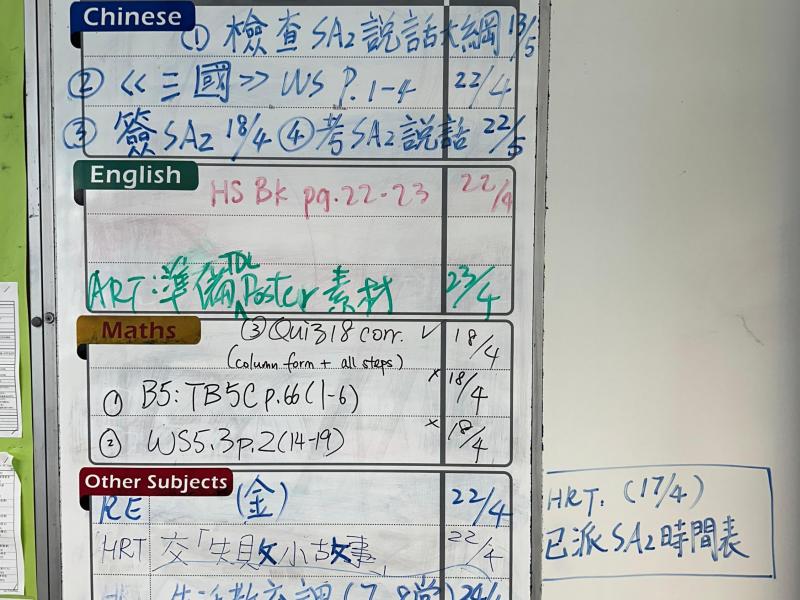 Chinese
① 檢查 SA2 說話大綱 13/5
② 《三國》 WS P.1-4 22/4
③ 簽 SA2 18/4 ④ 考 SA2 說話 22/5
English
HS Bk pg.22-23 22/4
ART:準備 TDL Poster 素材 23/4
Maths
③ Quiz 18 corr. ✓ 18/4
(column form + all steps)
① B5: TB5C p.66 (1-6) × 18/4
② WS5.3 p.2 (14-19) × 18/4
Other Subjects
RE (金) 22/4
HRT 交「失敗小故事」 22/4
HRT. (17/4)
已派 SA2 時間表
24/4